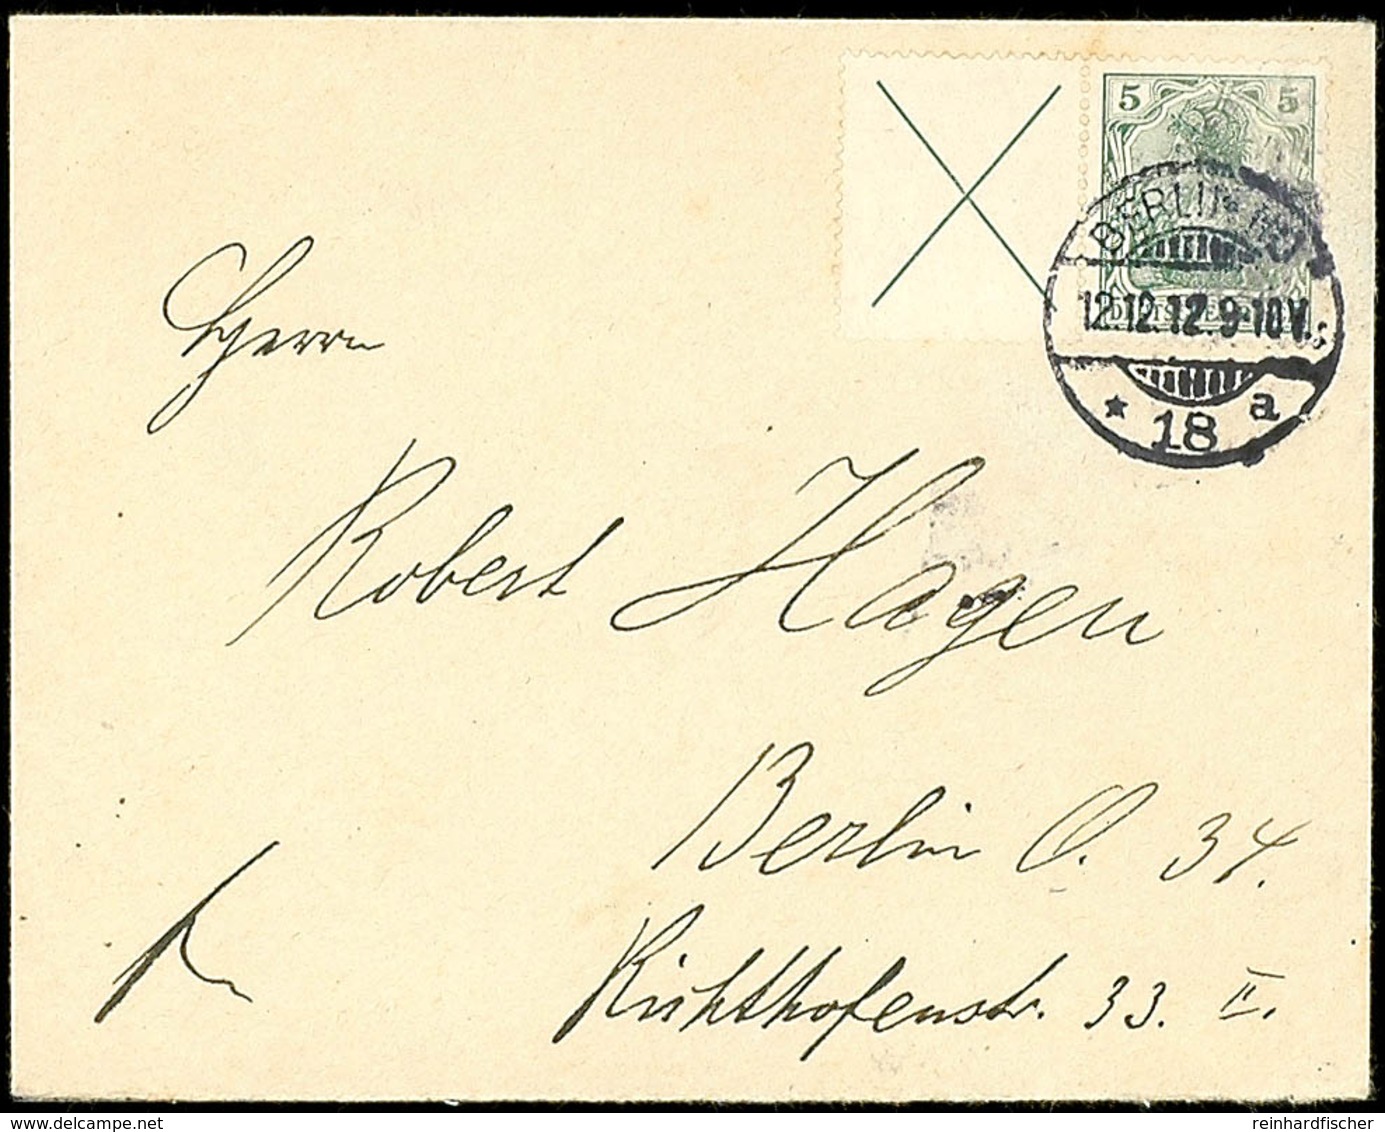 5 5
BERLIN
12.12.12.9-10V.
* 18 a
Herrn
Robert Hagen
Berlin O. 34.
Richthofenstr. 33. II.
www.delcampe.net
reinhardfischer